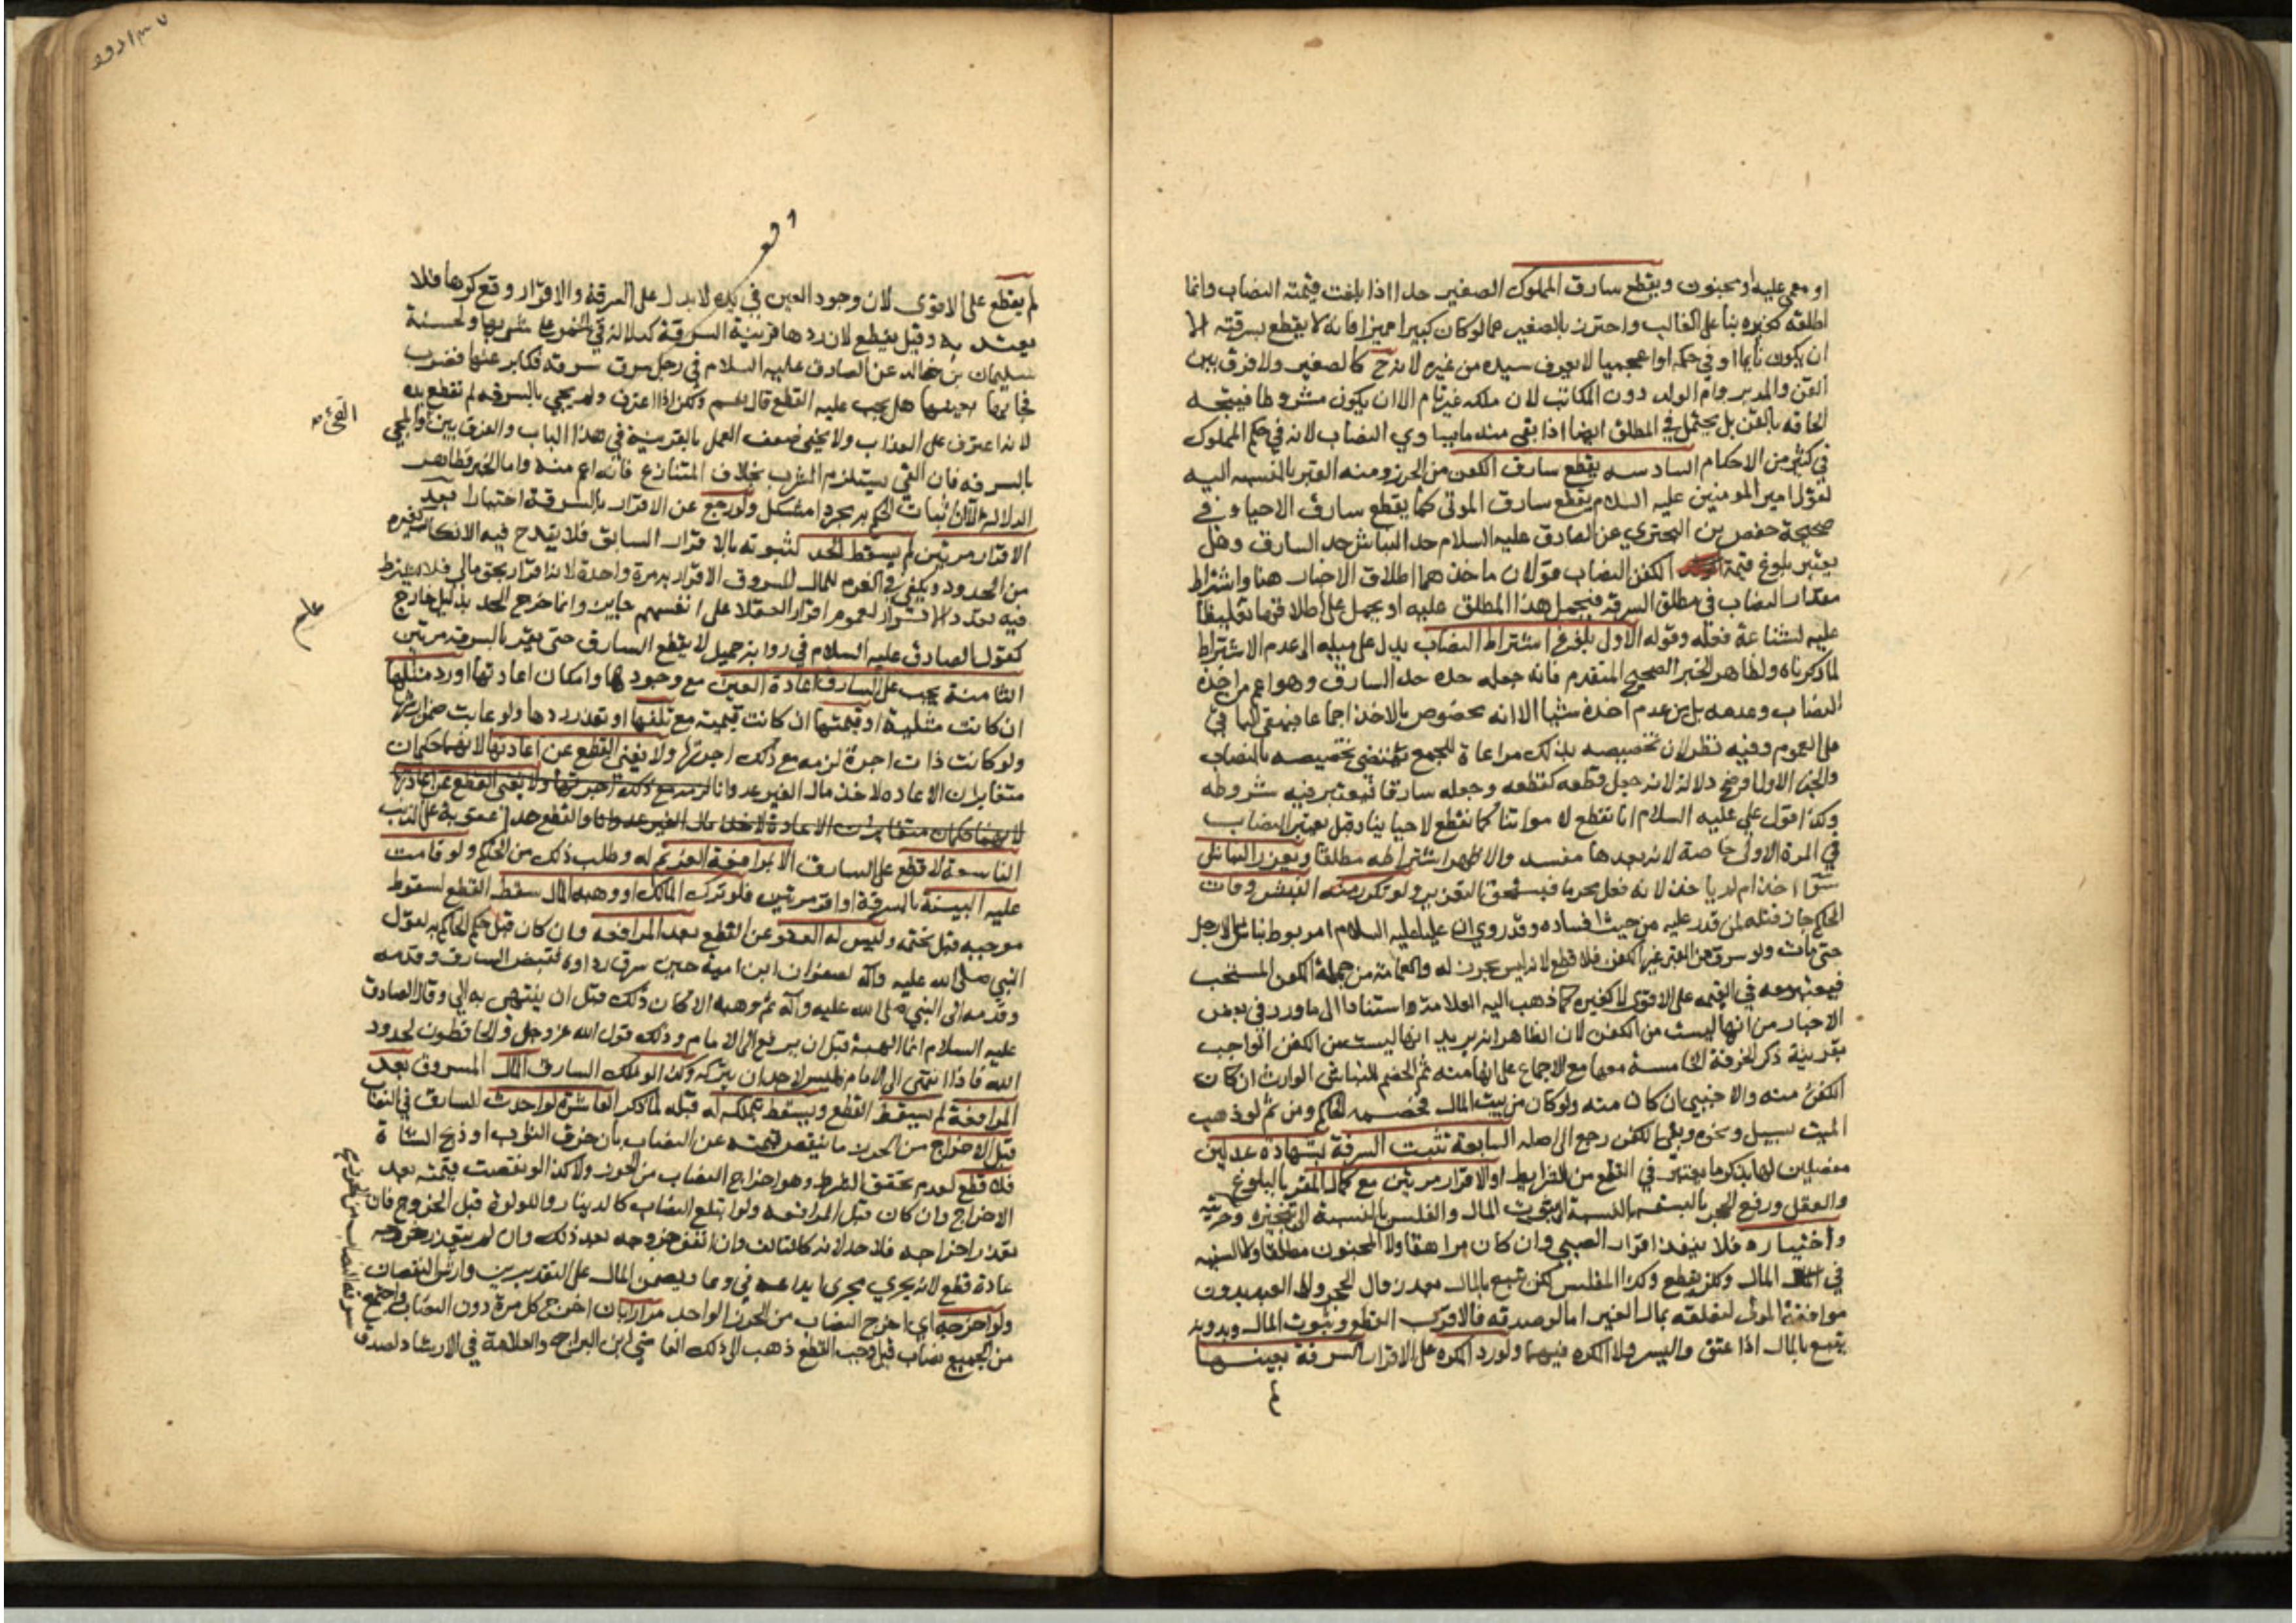 او مغمى عليه او مجنون ويقطع سارق المملوك الصغير حدا اذا بلغت قيمته النصاب وانما
اطلقه كغيره بناء على الغالب واحترز بالصغير عما لو كان كبيرا مميزا فانه لا يقطع بسرقته الا
ان يكون نايما او في حكمه او اعجميا لا يعرف سيده من غيره لانه ح كالصغير ولا فرق بين
القن والمدبر وام الولد دون المكاتب لان ملكه غير تام الا ان يكون مشروطا فيتجه
الحاقه بالقن بل يحتمل في المطلق ايضا اذا بقى منه ما يساوي النصاب لانه في حكم المملوك
في كثير من الاحكام السادسه يقطع سارق الكفن من الحرز ومنه القبر بالنسبه اليه
لقول امير المومنين عليه السلام يقطع سارق الموتى كما يقطع سارق الاحياء وفي
صحيحة حفص بن البختري عن الصادق عليه السلام حد النباش حد السارق وهل
يعتبر بلوغ قيمة الكفن النصاب قولان ماخذهما اطلاق الاخبار هنا واشتراط
مقدار النصاب في مطلق السرقة فيحمل هذا المطلق عليه او يحمل على اطلاقه تغليظا
عليه لشناعة فعله وقوله الاول بلوغ في اشتراط النصاب يدل على ميله الى عدم الاشتراط
لما ذكرناه ولظاهر الخبر الصحيح المتقدم فانه جعله حده حد السارق وهو اعم من اخذه
النصاب وعدمه بل من عدم اخذه شيئا الا انه مخصوص بالاخذ اجماعا فيبقى الباقي
على العموم وفيه نظر لان تخصيصه بذلك مراعاة للجمع يقتضي تخصيصه بالنصاب
والخبر الاول اوضح دلالة لانه جعل قطعه كقطعه وجعله سارقا فيعتبر فيه شروطه
وكذا قول علي عليه السلام انا نقطع لامواتنا كما نقطع لاحيائنا وقيل يعتبر النصاب
في المرة الاولى خاصة لانه بعدها مفسد والاظهر اشتراطه مطلقا ويعزر النباش
سواء اخذ ام لم ياخذ لانه فعل محرما فيستحق التعزير ولو تكرر منه النبش وفات
الحاكم جاز قتله لمن قدر عليه من حيث افساده وقد روي ان عليا عليه السلام امر بوطئ نباش بالارجل
حتى مات ولو سرق من القبر غير الكفن فلا قطع لانه ليس بحرز له والعمامة من جملة الكفن المستحب
فيعتبر معه في القيمه على الاقوى لا كغيره كما ذهب اليه العلامة استنادا الى ما ورد في بعض
الاخبار من انها ليست من الكفن لان الظاهر انه يريد انها ليست من الكفن الواجب
بقرينة ذكر الخرقة الخامسة معها مع الاجماع على انها منه ثم الخصم للنباش الوارث ان كان
الكفن منه والاجنبي ان كان منه ولو كان من بيت المال فخصمه الحاكم ومن ثم لو ذهب
الميت بسيل ونحوه وبقي الكفن رجع الى اصله السابعة تثبت السرقة بشهادة عدلين
مفصلين لها بذكر ما يعتبر في القطع من الشرايط او الاقرار مرتين مع كمال المقر بالبلوغ
والعقل ورفع الحجر بالسفه بالنسبة الى ثبوت المال والفلس بالنسبة الى تنجيزه وحريته
واختياره فلا ينفذ اقرار الصبي وان كان مراهقا ولا المجنون مطلقا ولا السفيه
في المال ولكن يقطع وكذا المفلس لكن يتبع بالمال بعد زوال الحجر ولا العبد بدون
موافقة المولى لتعلقه بمال الغير اما لو صدقه فالاقرب القطع وثبوت المال وبدونه
يتبع بالمال اذا عتق وايسر ولا المكره فيهما ولو رد المكره على الاقرار السرقة بعينها
لم
اوقع
لم يقطع على الاقوى لان وجود العين في يده لا يدل على السرقة والاقرار وقع كرها فلا
يعتد به وقيل يقطع لان ردها قرينة السرقة كدلالة قي الخمر على شربها ولحسنة
سليمان بن خالد عن الصادق عليه السلام في رجل سرق سرقة فكابر عنها فضرب
فجاء بها بعينها هل يجب عليه القطع قال نعم ولكن اذا اعترف ولم يجي بالسرقه لم تقطع يده
لانه اعترف على العذاب ولا يخفى ضعف العمل بالقرينة في هذا الباب والفرق بين القي والمجي
بالسرقه فان القي يستلزم الشرب بخلاف المتنازع فانه اعم منه واما الخبر فظاهر
الدلالة الا ان اثبات الحكم به مجردا مشكل ولو رجع عن الاقرار بالسرقة اختيارا بعد
الاقرار مرتين لم يسقط الحد لثبوته بالاقرار السابق فلا يقدح فيه الانكار كغيره
من الحدود ويكفي في الغرم للمال المسروق الاقرار به مرة واحدة لانه اقرار بحق مالي فلا يشترط
فيه تعدد الاقرار لعموم اقرار العقلا على انفسهم جايز وانما خرج الحد بدليل خارج
كقول الصادق عليه السلام في رواية جميل لا يقطع السارق حتى يقر بالسرقه مرتين
الثامنة يجب على السارق اعادة العين مع وجودها وامكان اعادتها او رد مثلها
ان كانت مثلية او قيمتها ان كانت قيمية مع تلفها او تعذر ردها ولو عابت ضمن ارشها
ولو كانت ذات اجرة لزمه مع ذلك اجرتها ولا يغني القطع عن اعادتها لانهما حكمان
متغايران الاعاده لاخذ مال الغير عدوانا لزمه مع ذلك اجرتها ولا يغني القطع عن اعادتها
لانهما حكمان متغايران الاعادة لاخذ مال الغير عدوانا والقطع حد او عقوبة على الذنب
التاسعة لا قطع على السارق الا بمرافعة الغريم له وطلب ذلك من الحاكم ولو قامت
عليه البينة بالسرقة او اقر مرتين فلو ترك المالك او وهبه المال سقط القطع لسقوط
موجبه قبل تحتمه وليس له العفو عن القطع بعد المرافعه وان كان قبل حكم الحاكم به لقول
النبي صلى الله عليه وآله لصفوان ابن امية حين سرق رداوه فقبض السارق وقدمه
وقدمه الى النبي صلى الله عليه وآله ثم وهبه الا كان ذلك قبل ان ينتهى به الي وقال الصادق
عليه السلام انما الهبة قبل ان يرفع الى الامام وذلك قول الله عز وجل والحافظون لحدود
الله فاذا انتهى الى الامام فليس لاحد ان يتركه وكذا لو ملك السارق المال المسروق بعد
المرافعة لم يسقط القطع ويسقط بملكه له قبله لما ذكر العاشرة لو احدث السارق في النصاب
قبل الاخراج من الحرز ما ينقص قيمته عن النصاب بان خرق الثوب او ذبح الشاة
فلا قطع لعدم تحقق الشرط وهو اخراج النصاب من الحرز ولا كذا لو نقصت قيمته بعد
الاخراج وان كان قبل المرافعه ولو ابتلع النصاب كالدينار واللولوة قبل الخروج فان
تعذر اخراجه فلا حد لانه كالتالف وان اتفق خروجه بعد ذلك وان لم يتعذر خروجه
عادة قطع لانه يجري مجرى ايداعه في وعاء ويضمن المال على التقديرين وارش النقصان
ولو اخرجه اي اخرج النصاب من الحرز الواحد مرارا بان اخرج كل مرة دون النصاب واجتمع
من الجميع نصاب قيل وجب القطع ذهب الى ذلك القاضي ابن البراج والعلامة في الارشاد لصدق
القي
علم
سرقه النصاب من الحرز